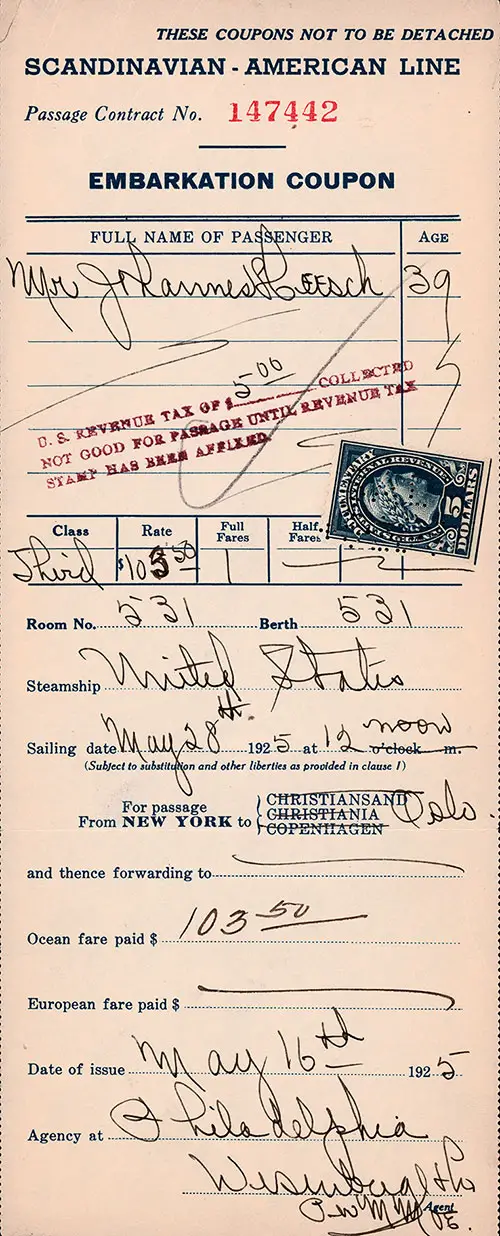 THESE COUPONS NOT TO BE DETACHED
SCANDINAVIAN - AMERICAN LINE
Passage Contract No. 147442
EMBARKATION COUPON
FULL NAME OF PASSENGER AGE
Mr Johannes Heesch 39
5.00
U. S. REVENUE TAX OF $ COLLECTED
NOT GOOD FOR PASSAGE UNTIL REVENUE TAX
STAMP HAS BEEN AFFIXED.
DOCUMENTARY
U.S. INTERNAL REVENUE
5
DOLLARS
Class Rate Full Fares Half Fares
Third $103.50 1
Room No. 531 Berth 531
Steamship United States
Sailing date May 28th. 1925 at 12 noon o'clock m.
(Subject to substitution and other liberties as provided in clause 1)
For passage
From NEW YORK to
CHRISTIANSAND
CHRISTIANIA Oslo.
COPENHAGEN
and thence forwarding to
Ocean fare paid $ 103.50
European fare paid $
Date of issue May 16th 1925
Agency at Philadelphia
Agent